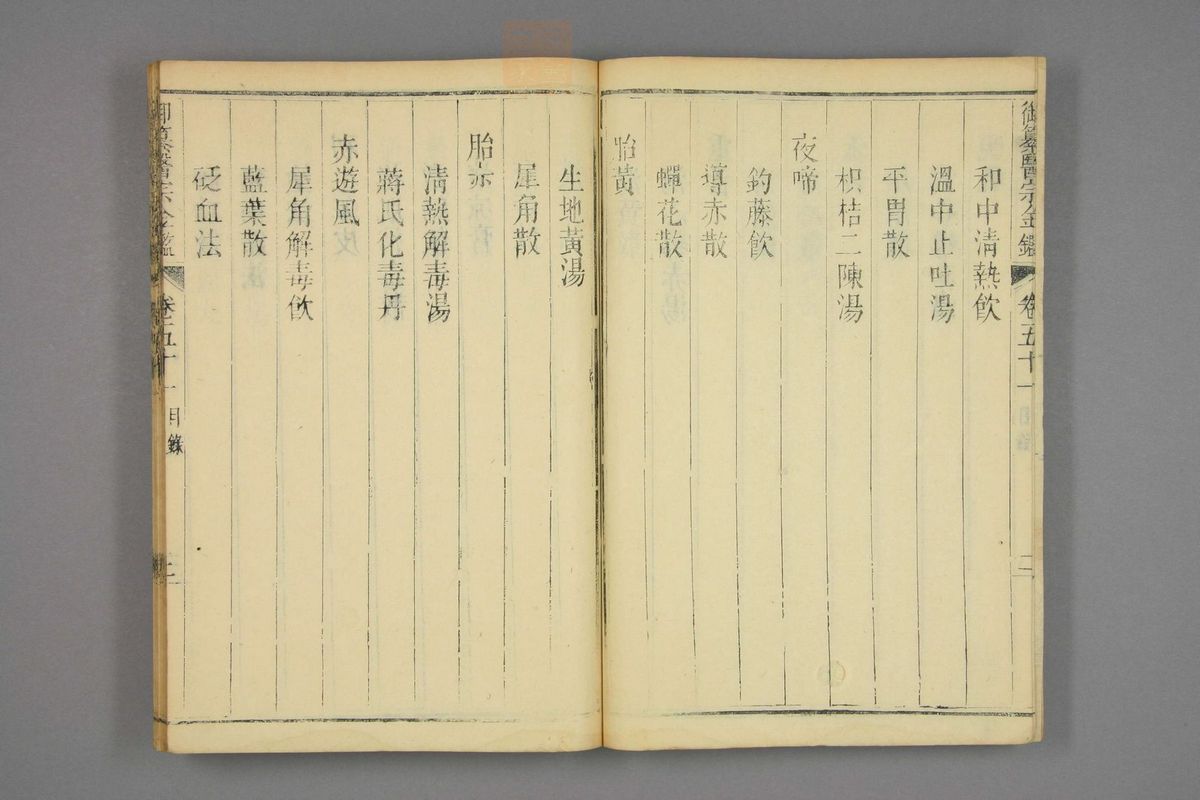 御纂醫宗金鑑 卷五十一 目錄 二
和中清熱飲
溫中止吐湯
平胃散
枳桔二陳湯
夜啼
鈎藤飲
導赤散
蟬花散
胎黃
生地黃湯
犀角散
胎赤
清熱解毒湯
蔣氏化毒丹
赤遊風
犀角解毒飲
藍葉散
砭血法
御纂醫宗金鑑 卷五十一 目錄 三